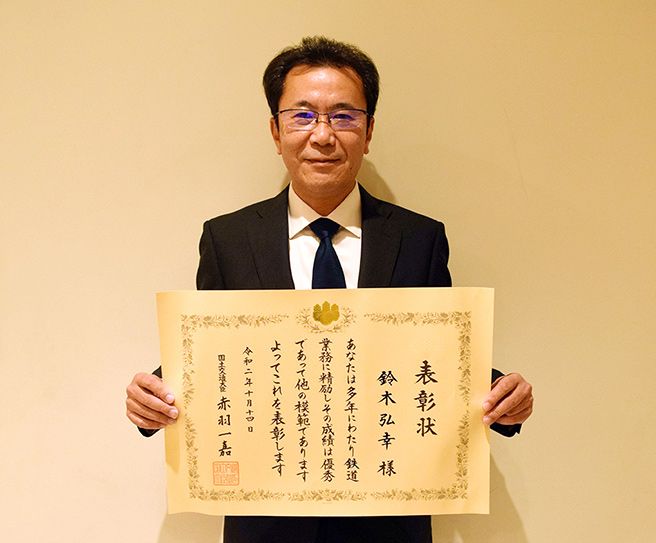 表彰状
鈴木弘幸 様
あなたは多年にわたり鉄道
業務に精励しその成績は優秀
であって他の模範であります
よってこれを表彰します
令和二年十月十四日
国土交通大臣 赤羽一嘉